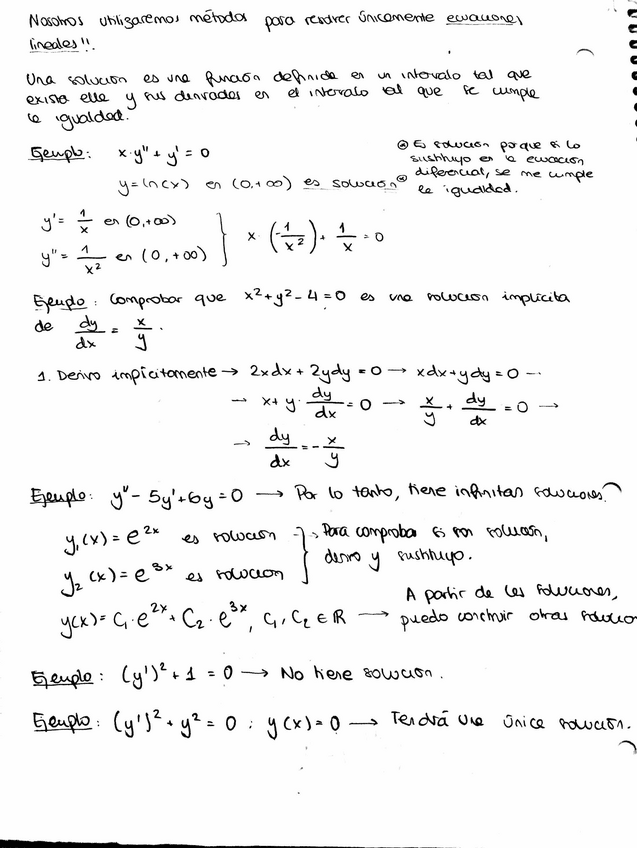 Nosotros utilizaremos métodos para resolver únicamente ecuaciones
lineales!!.
Una solución es una función definida en un intervalo tal que
exista ella y sus derivadas en el intervalo tal que se cumple
la igualdad.
Ejemplo: x·y'' + y' = 0
y = ln(x) en (0,+∞) es solución⊛
⊛ Es solución porque si lo
sustituyo en la ecuación
diferencial, se me cumple
la igualdad.
y' = 1/x en (0,+∞)
y'' = 1/x² en (0,+∞)
} x · (-1/x²) + 1/x = 0
Ejemplo: Comprobar que x² + y² - 4 = 0 es una solución implícita
de dy/dx = x/y.
1. Derivo implícitamente → 2xdx + 2ydy = 0 → xdx + ydy = 0 →
→ x + y · dy/dx = 0 → x/y + dy/dx = 0 →
→ dy/dx = - x/y
Ejemplo: y'' - 5y' + 6y = 0 → Por lo tanto, tiene infinitas soluciones.
y₁(x) = e^2x es solución
y₂(x) = e^3x es solución
} → Para comprobar si son solución,
derivo y sustituyo.
y(x) = C₁·e^2x + C₂·e^3x, C₁, C₂ ∈ ℝ → A partir de las soluciones,
puedo construir otras
Ejemplo: (y')² + 1 = 0 → No tiene solución.
Ejemplo: (y')² + y² = 0 ; y(x) = 0 → Tendrá una única solución.